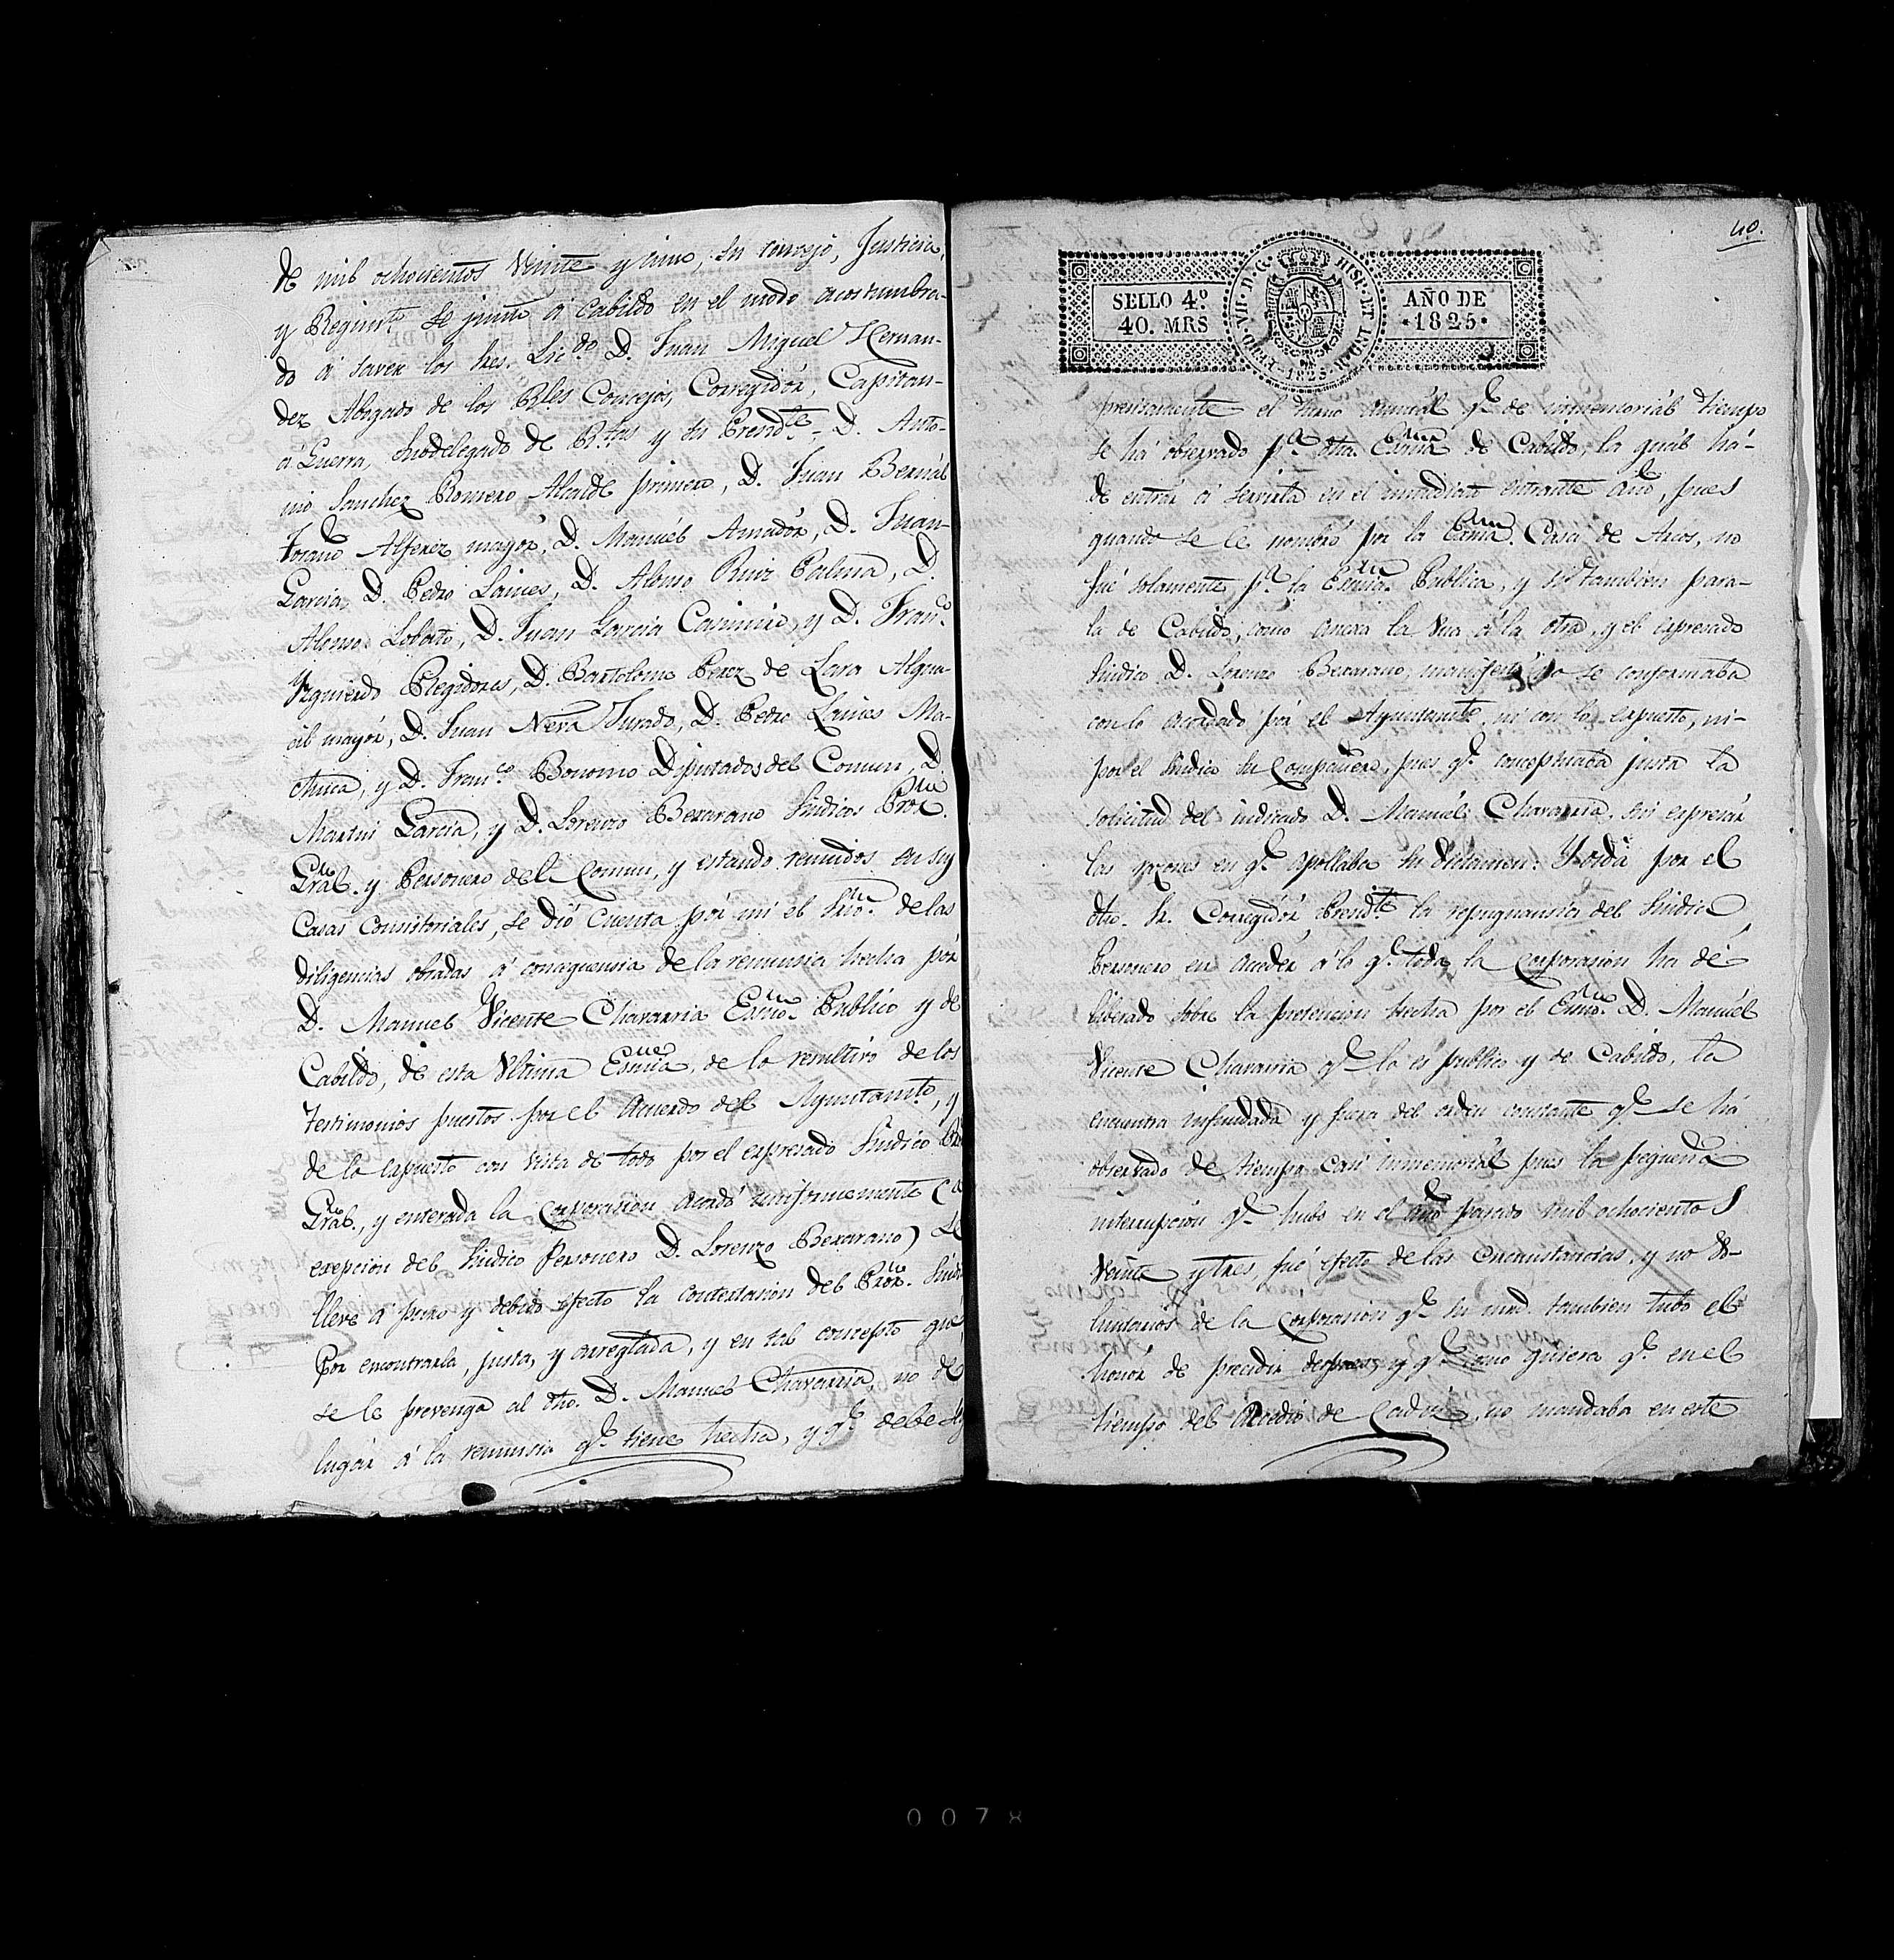 de mil ochocientos veinte y cinco, su consejo, Justicia,
y Regimto. se juntó á Cabildo en el modo acostumbra-
do á saver los Sres. Licdo. D. Juan Miguel Hernan-
dez Abogado de los Rles Concejos, Corregidór, Capitan-
á Guerra, Subdelegado de Rtas y su Presidte. D. Anto-
nio Sanchez Romero Alcalde primero, D. Juan Bernál
Alferez mayór, D. Manuél Amadór, D. Juan-
Garcia, D. Pedro Laines, D. Alonso Ruiz Palma, D.
Alonso Lobato, D. Juan Garcia Casimiro, y D. Franco.
Yzquierdo Regidores, D. Bartolome Perez de Lara Algua-
cil mayór, D. Juan Neva Jurado, D. Pedro Laines Ma-
chuca, y D. Franco. Bonomo Diputados del Comun, D.
Martin Garcia, y D. Lorenzo Bexarano Sindicos Pror.
Gral. y Personero del Comun, y estando reunidos en sus
Casas Consistoriales, se dió cuenta por mi el Srio. de las
diligencias obradas á consequensia de la renunsia hecha por
D. Manuel Vicente Chavarria Esno. Publico y de
Cabildo, de esta Ultima Esnia, de lo resultivo de los
testimonios puestos por el Acuerdo del Ayuntamto., y
de lo espuesto con vista de todo por el expresado Sindico
Gral., y enterada la Corporasion acordó uniformemente (á
exepcion del Sindico Personero D. Lorenzo Bexarano) se
lleve á puro y debido efecto la contextasion del Pror. Sindi
Por encontrarla, justa, y arreglada, y en tal concepto que
se le prevenga al dho. D. Manuel Chavarria, no dé
lugár á la renunsia qe. tiene hecha, y qe. debe
40.
SELLO 4.º
40. MRS
FERD. VII. D. G. HISP. ET IND. R. 1825
AÑO DE
1825
presisamente el turno anuál qe. de inmemoriál tiempo
se há observado pa. dha. Esnia de Cabildo, la quál há-
de entrár á servirla en el inmediato entrante año, pues
quando se le nombró por la Exma. Casa de Arcos, no
fué solamente pa. la Esnia. Publica, y sí tambien para-
la de Cabildo, como anexa la una á la otra, y el expresado
Sindico D. Lorenzo Bexarano, manifestó no se conformaba
con lo acordado por el Ayuntamto., ni con lo expuesto, ni-
por el Sindico su Compañero, pues qe. conceptuaba justa la
solicitud del indicado D. Manuél Chavarria, sin expresár
las rasones en qe. apollaba su dictamen: Y oida por el
dho. Sr. Corregidór Presidte. la repugnansia del Sindico
Personero en accedér á lo qe. toda la Corporasion ha de
liberado sobre la pretencion hecha por el Esno. D. Manuél
Vicente Chavarria qe. lo és publico y de Cabildo, la
encuentra infundada y fuera del orden constante qe. se há
observado de tiempo casi inmemoriál pues la pequeña
interrupcion qe. hubo en el año pasado mil ochocientos
veinte y tres, fué efecto de las circunstancias, y no vo-
luntarios de la Corporasion qe. su mrd. tambien tubo el
honór de precidir despues, y qe. como quiera qe. en el
tiempo del Acedio de Cadiz, no mandaba en este
0078